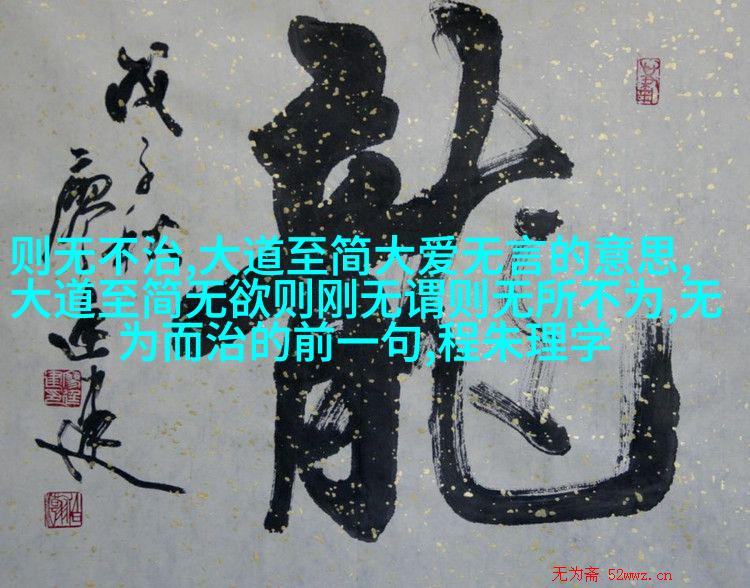 龍
戊子秋
则无不治,大道至简大爱无言的意思,
大道至简无欲则刚无谓则无所不为,无
为而治的前一句,程朱理学
无为斋 52wwz.cn